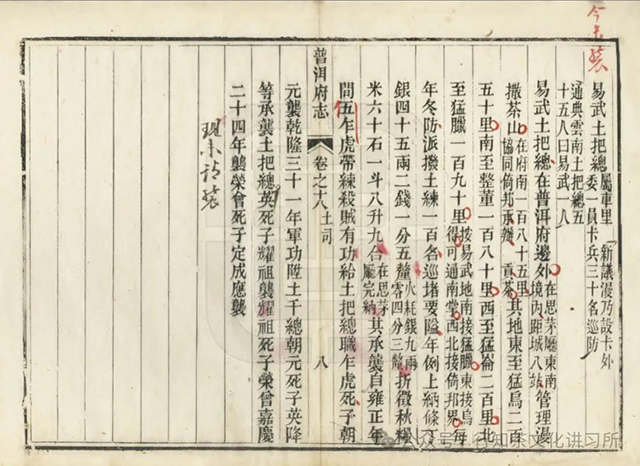 易武土把總屬車里新議漫乃設卡外
委一員卡兵三十名巡防
通典雲南土把總五
十五人曰易武一人
易武土把總在普洱府邊外在思茅廳東南境內距城八站管理漫
撒茶山在府南一百八十五里協同倚邦承辦貢茶其地東至猛烏二百
五十里南至整董一百八十里西至猛崙二百里北
至猛臘一百九十里按易武地南接猛臘東接烏得可通南掌西北接倚邦界每
年冬防派撥土練一百名巡堵要隘年例上納條丁
銀四十五兩二錢一分五釐火耗銀九兩零四分三釐折徵秋糧
米六十石一斗八升九合在思茅廳完納其承襲自雍正年
普洱府志 卷之十八 土司 八
間伍乍虎帶練殺賊有功給土把總職乍虎死子朝
元襲乾隆三十一年軍功陞土千總朝元死子英降
等承襲土把總英死子耀祖襲耀祖死子榮曾嘉慶
二十四年襲榮曾死子定成應襲
茶文化讲习所